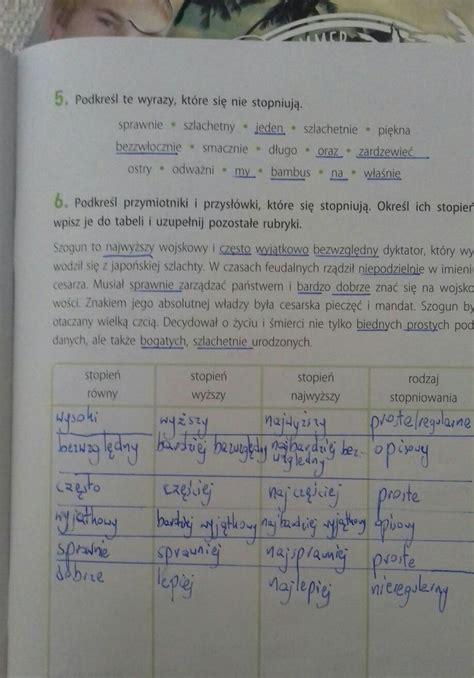 5. Podkreśl te wyrazy, które się nie stopniują.
sprawnie • szlachetny • jeden • szlachetnie • piękna
bezzwłocznie • smacznie • długo • oraz • zardzewieć
ostry • odważni • my • bambus • na • właśnie
6. Podkreśl przymiotniki i przysłówki, które się stopniują. Określ ich stopień
wpisz je do tabeli i uzupełnij pozostałe rubryki.
Szogun to najwyższy wojskowy i często wyjątkowo bezwzględny dyktator, który wy
wodził się z japońskiej szlachty. W czasach feudalnych rządził niepodzielnie w imieni
cesarza. Musiał sprawnie zarządzać państwem i bardzo dobrze znać się na wojsko
wości. Znakiem jego absolutnej władzy była cesarska pieczęć i mandat. Szogun by
otaczany wielką czcią. Decydował o życiu i śmierci nie tylko biednych prostych pod
danych, ale także bogatych, szlachetnie urodzonych.
stopień równy stopień wyższy stopień najwyższy rodzaj stopniowania
wysoki wyższy najwyższy proste/regularne
bezwzględny bardziej bezwzględny najbardziej bez-
względny opisowy
często częściej najczęściej proste
wyjątkowy bardziej wyjątkowy najbardziej wyjątkowy opisowy
sprawnie sprawniej najsprawniej proste
dobrze lepiej najlepiej nieregularny